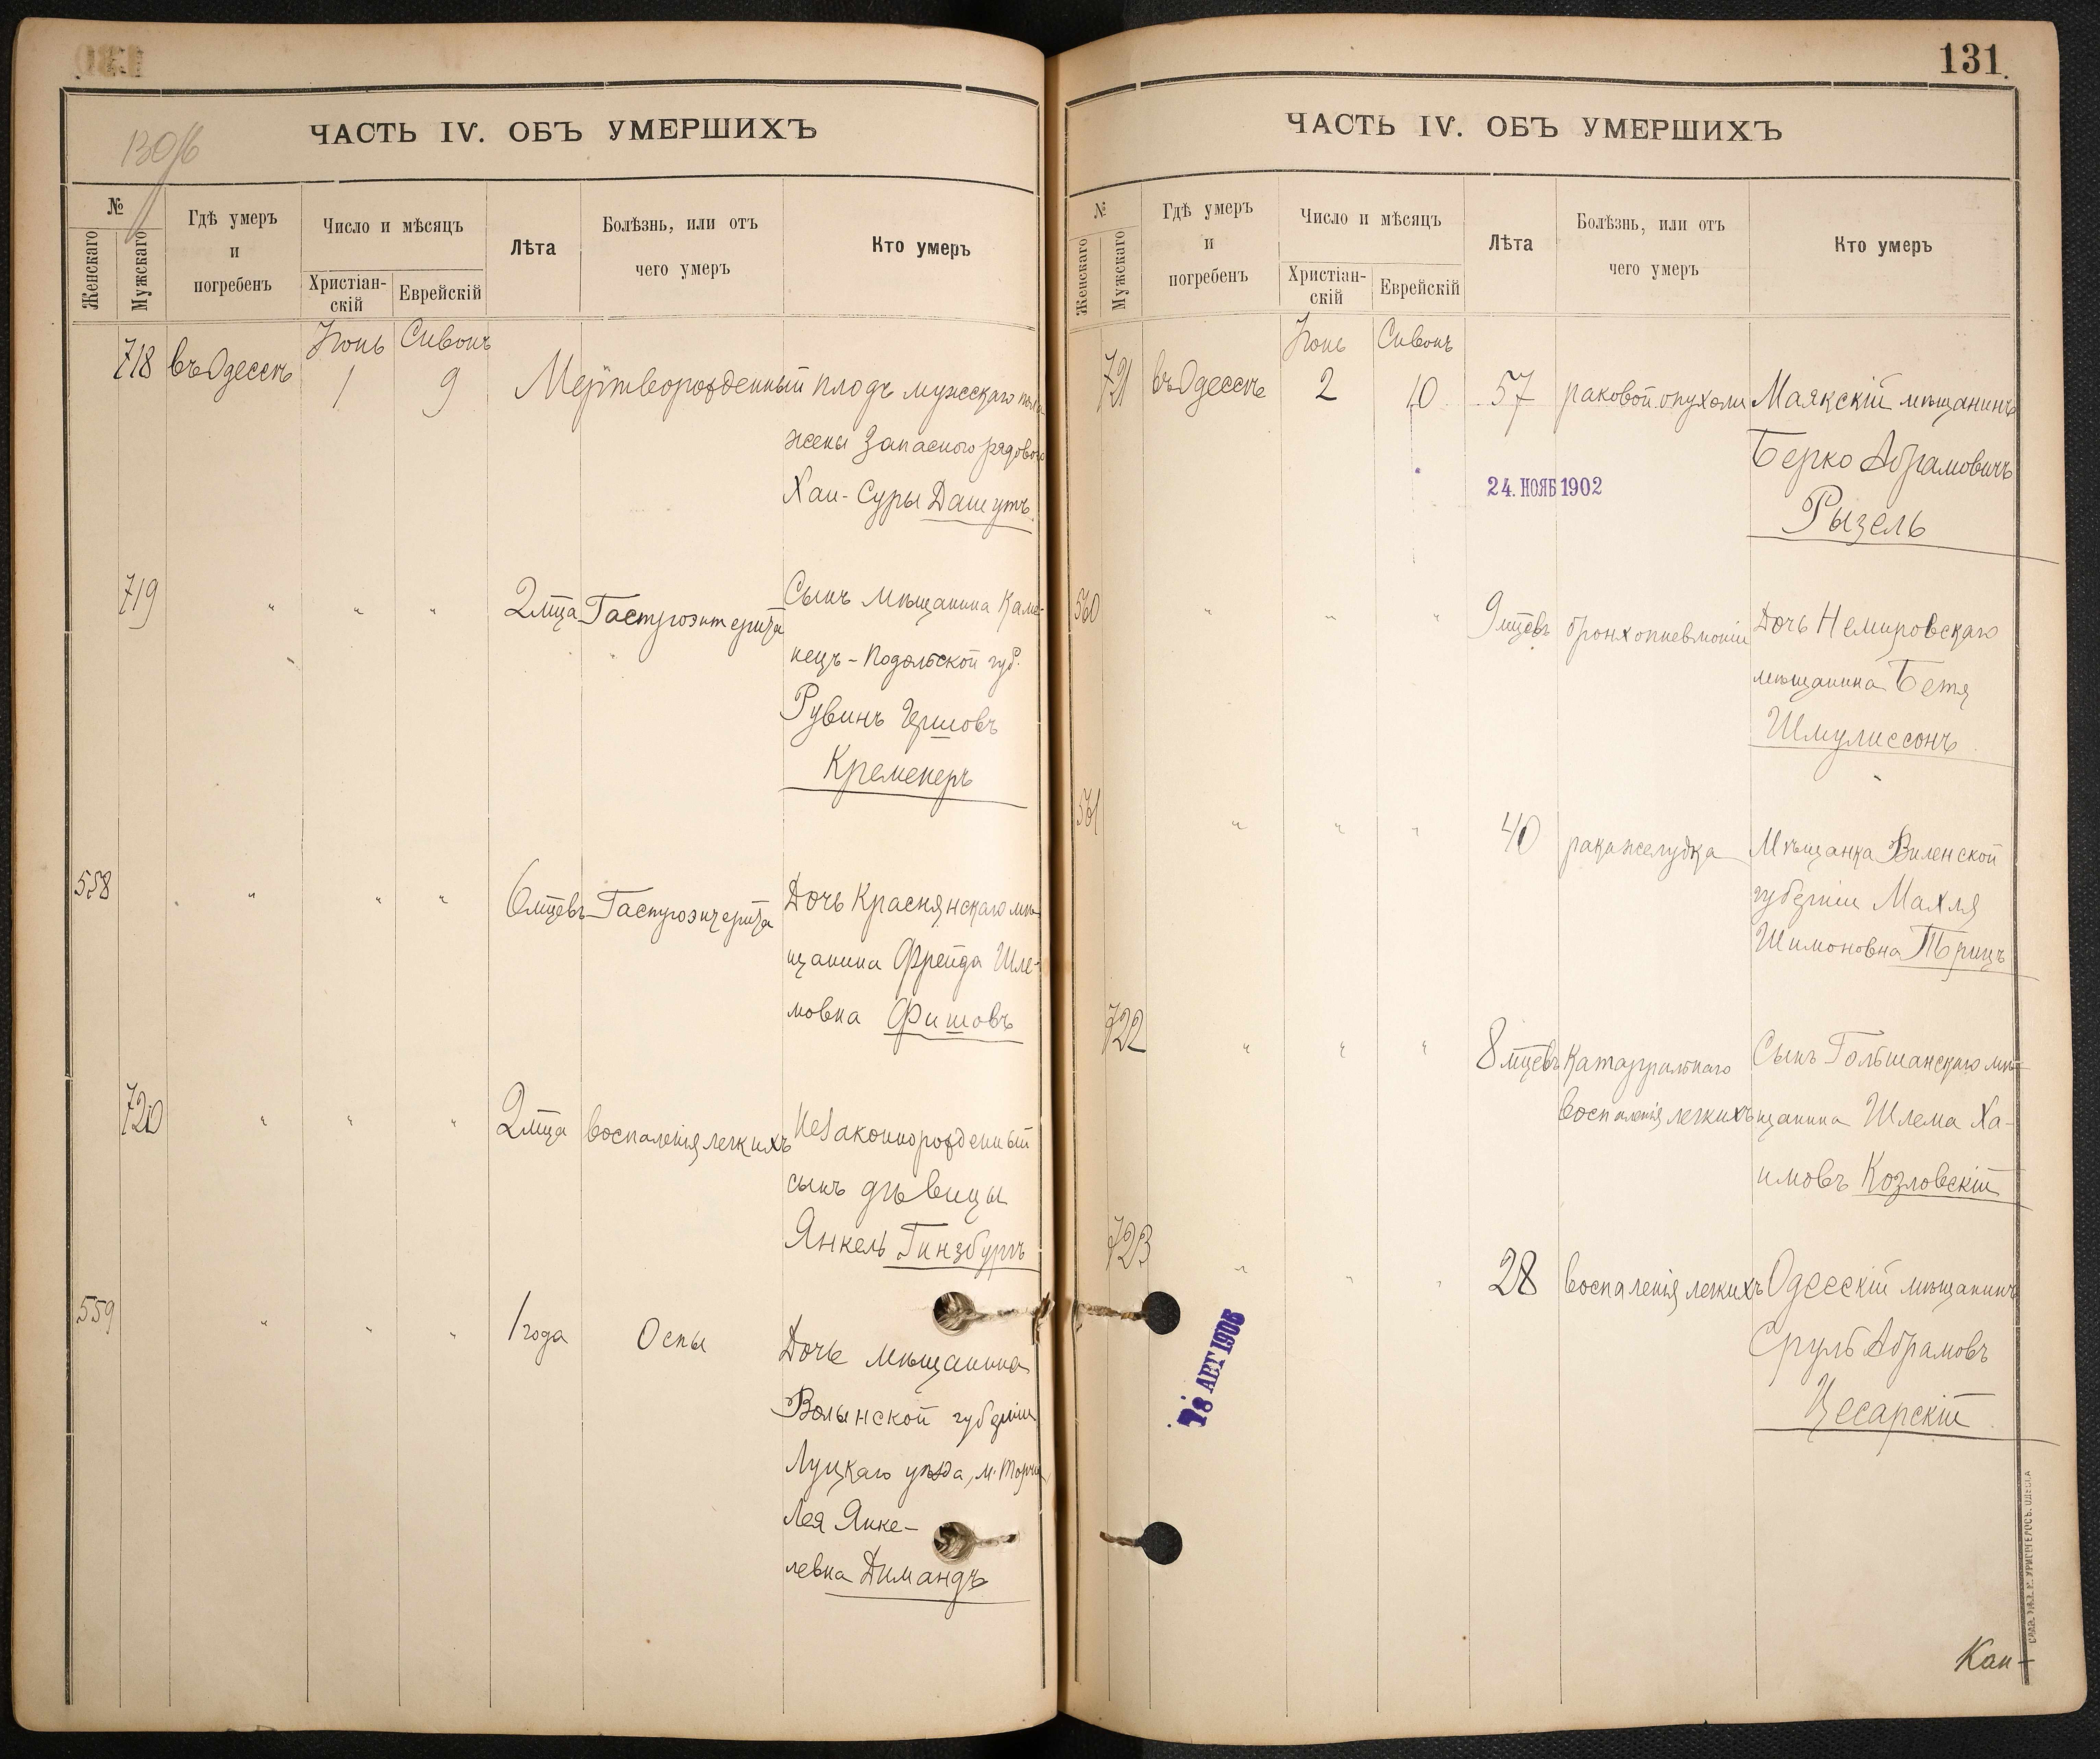 130/б
ЧАСТЬ IV. ОБЪ УМЕРШИХЪ
№
Женскаго
Мужскаго
Гдѣ умеръ
и
погребенъ
Число и мѣсяцъ
Христіан-
скій
Еврейскій
Лѣта
Болѣзнь, или отъ
чего умеръ
Кто умеръ
Іюнь Сивонъ
718 въ Одессѣ 1 9 Мертворожденный плодъ мужскаго пола
жены Запаснаго рядового
Хаи-Суры Дашутъ
719 " " " 2 мѣца Гастроэнтерита Сынъ мѣщанина Каме-
нецъ-Подольской губ.
Рувинъ Гершовъ
Кременеръ
558 " " " 6 мѣцевъ Гастроэнтерита Дочь Краснянскаго мѣ-
щанина Фрейда Шле-
мовна Фишовъ
720 " " " 2 мѣца воспаленія легкихъ Незаконнорожденный
сынъ дѣвицы
Янкель Гинзбургъ
559 " " " 1 года Оспы Дочь мѣщанина
Волынской губерніи
Луцкаго уѣзда, м. Торчина
Лея Янке-
левна Димандъ
131.
ЧАСТЬ IV. ОБЪ УМЕРШИХЪ
№
Женскаго
Мужскаго
Гдѣ умеръ
и
погребенъ
Число и мѣсяцъ
Христіан-
скій
Еврейскій
Лѣта
Болѣзнь, или отъ
чего умеръ
Кто умеръ
Іюнь Сивонъ
721 въ Одессѣ 2 10 57 раковой опухоли Маякскій мѣщанинъ
Берко Абрамовичъ
24. НОЯБ 1902
Рызель
560 " " " 9 мѣцевъ бронхопневмоніи Дочь Немировскаго
мѣщанина Бетя
Шмулиссонъ
561 " " " 40 рака желудка Мѣщанка Виленской
губерніи Махля
Шимоновна Трицъ
722 " " " 8 мѣцевъ Катарральнаго Сынъ Гольшанскаго мѣ-
воспаленія легкихъ щанина Шлема Ха-
имовъ Козловскій
723 " " " 28 воспаленія легкихъ Одесскій мѣщанинъ
Сруль Абрамовъ
Цесарскій
18 АВГ 1906
Кан-